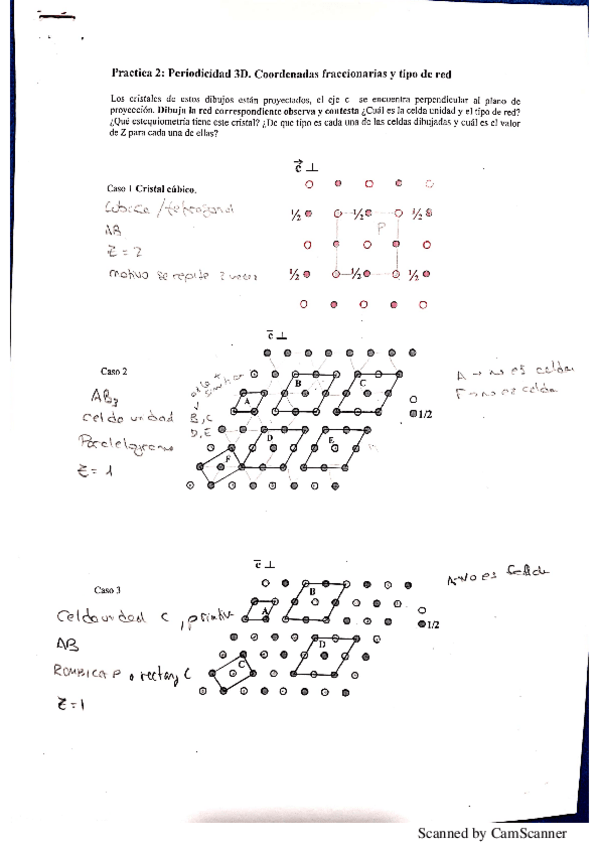 Practica 2: Periodicidad 3D. Coordenadas fraccionarias y tipo de red
Los cristales de estos dibujos están proyectados, el eje c se encuentra perpendicular al plano de
proyección. Dibuja la red correspondiente observa y contesta ¿Cuál es la celda unidad y el tipo de red?
¿Qué estequiometría tiene este cristal? ¿De que tipo es cada una de las celdas dibujadas y cuál es el valor
de Z para cada una de ellas?
c ⊥
Caso 1 Cristal cúbico.
Cubica / tetragonal
AB
Z = 2
motivo se repite 2 veces
1/2 1/2 1/2
P
1/2 1/2 1/2
c ⊥
Caso 2
AB3
Celda unidad
B, C
D, E
Paralelogramo
Z = 1
A B C
D E
F
1/2
A → no es celda
F → no es celda
c ⊥
Caso 3
Celda unidad C,
AB
ROMBICA P o rectang C
Z = 1
A B
C D
1/2
A → No es celda
Scanned by CamScanner